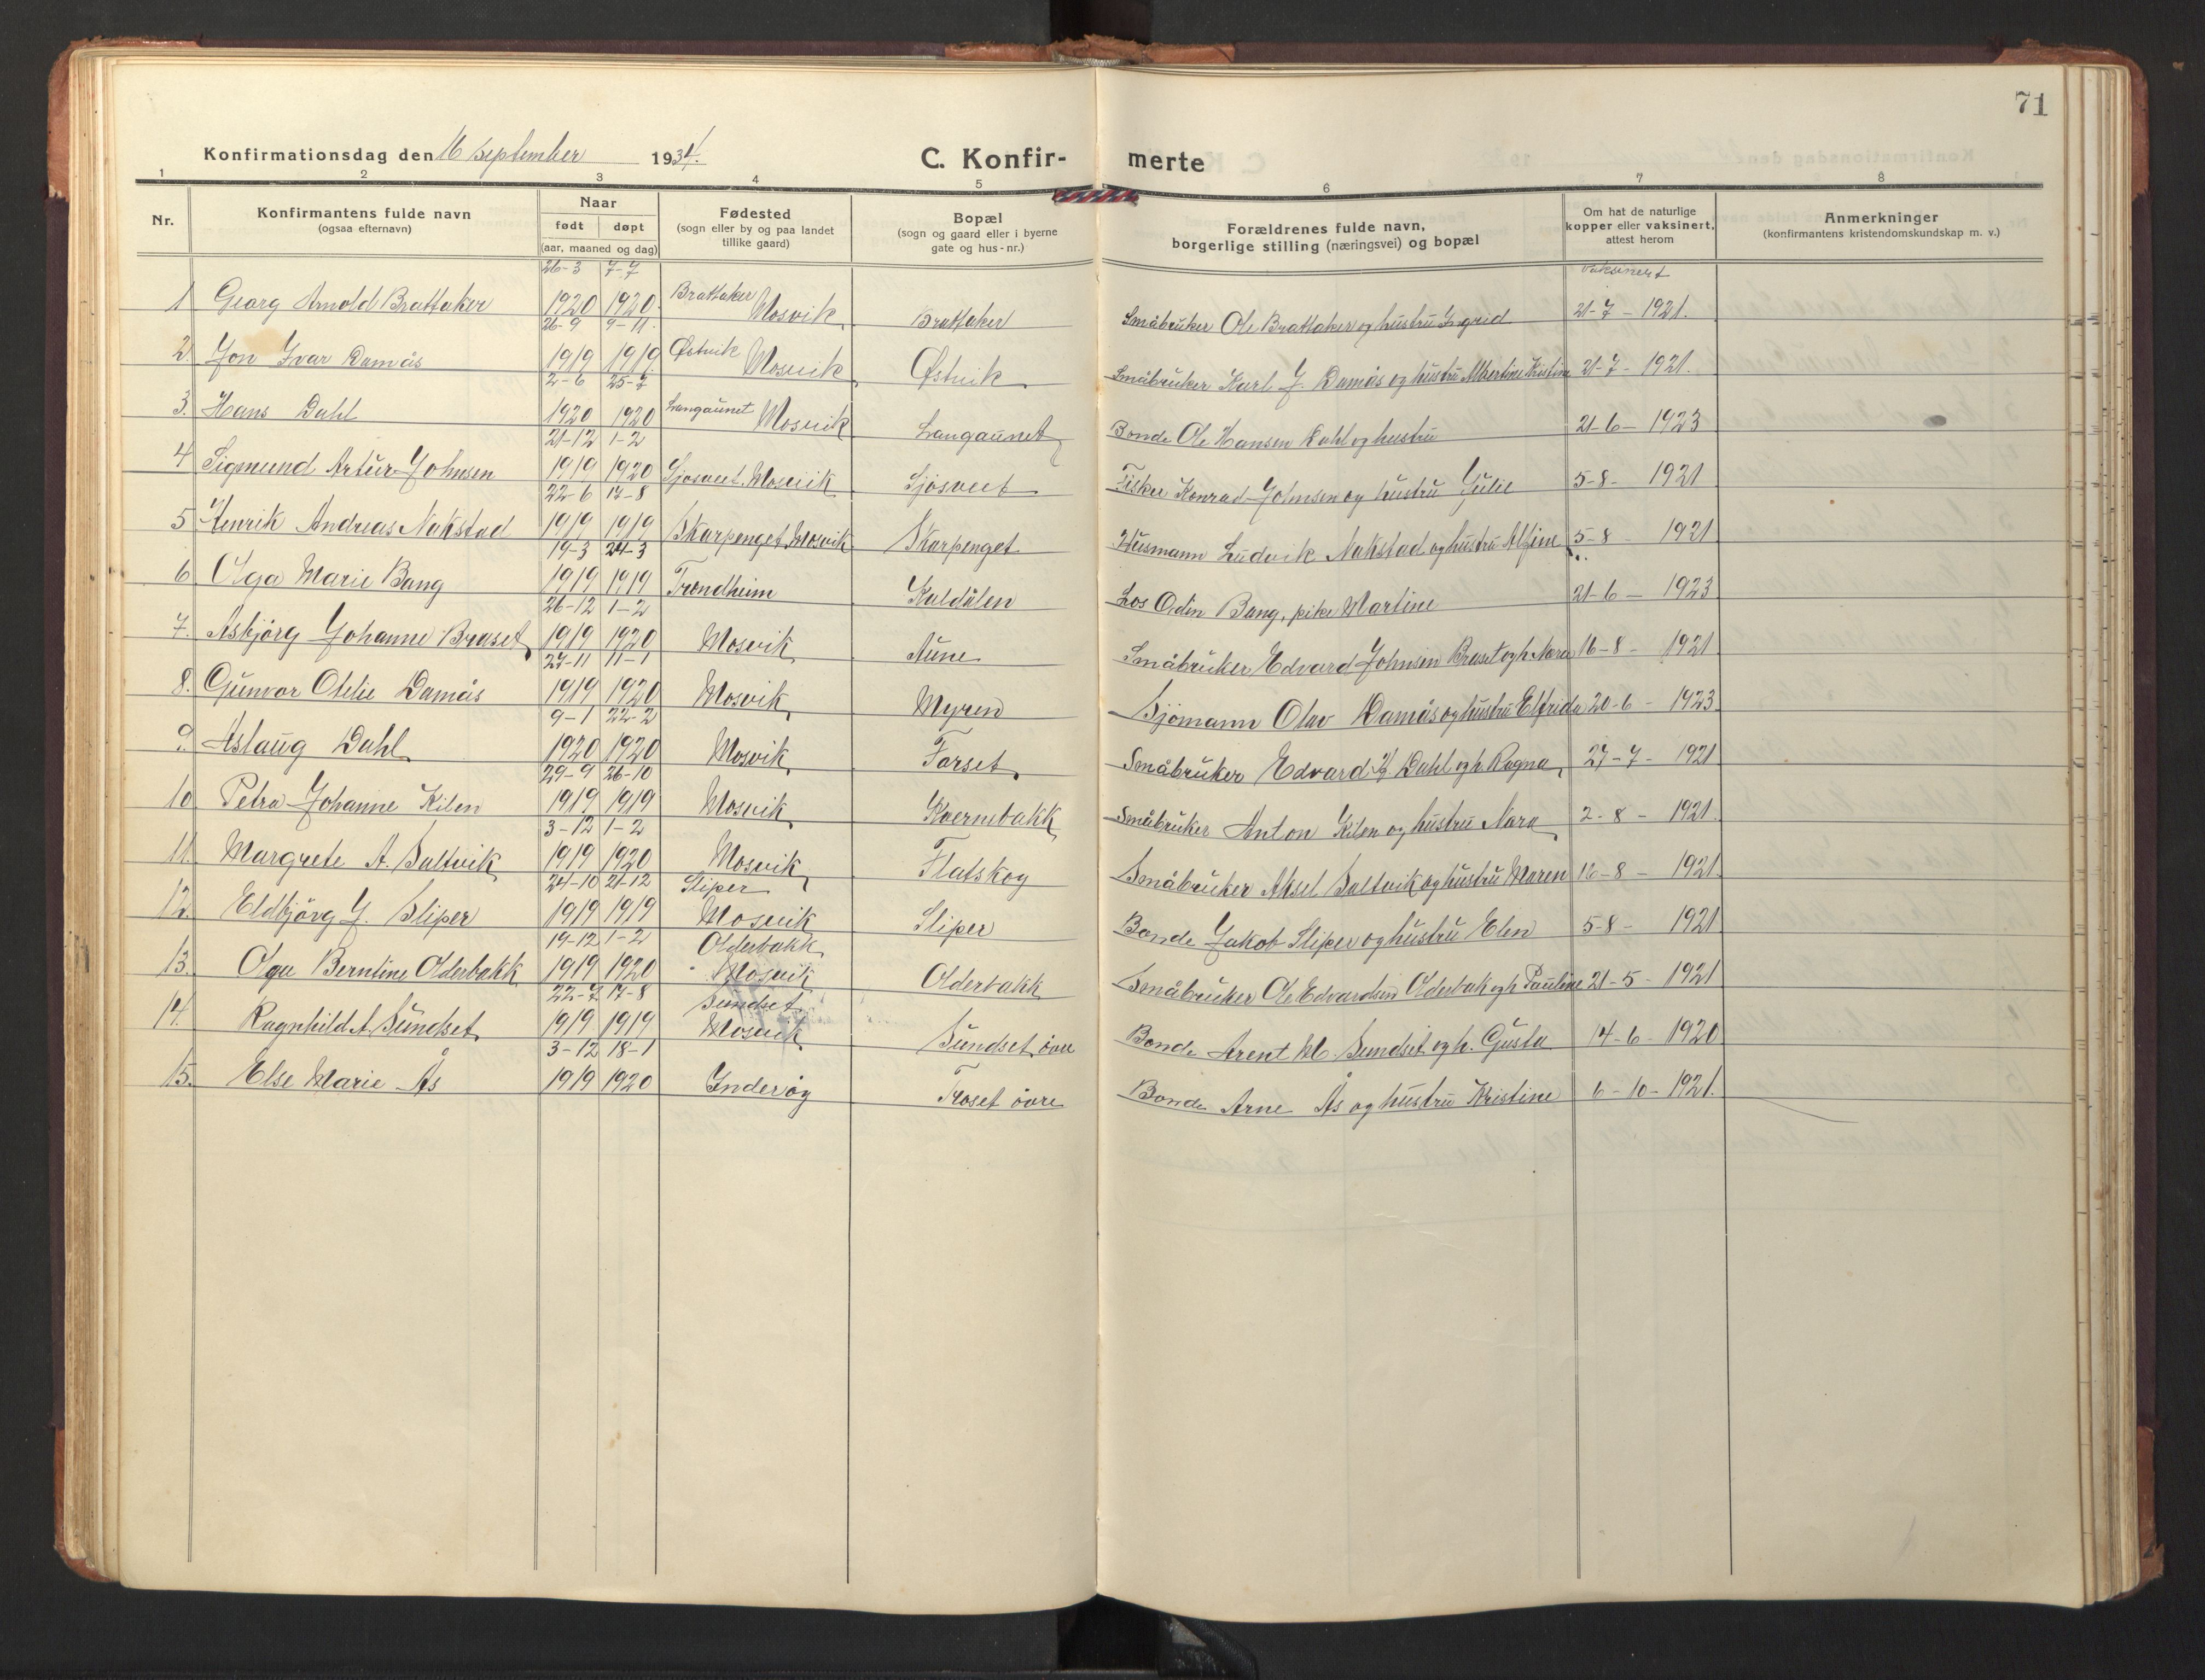 71
Konfirmationsdag den 16 september 1934.
C. Konfir- merte
1 2 3 4 5 6 7 8
Nr.
Konfirmantens fulde navn
(ogsaa efternavn)
Naar
født døpt
(aar, maaned og dag)
Fødested
(sogn eller by og paa landet
tillike gaard)
Bopæl
(sogn og gaard eller i byerne
gate og hus-nr.)
Forældrenes fulde navn,
borgerlige stilling (næringsvei) og bopæl
Om hat de naturlige
kopper eller vaksinert,
attest herom
Anmerkninger
(konfirmantens kristendomskundskap m. v.)
26-3 7-7 vaksinert
1 Georg Arnold Brattaker 1920 1920 Brattaker Mosvik Brattaker Småbruker Ole Brattaker og hustru Ingrid 21-7-1921.
26-9 9-11.
2. Jon Ivar Damås 1919 1919 Østvik Mosvik Østvik Småbruker Karl J. Damås og hustru Albertine Kristine 21-7-1921.
2-6 25-7
3. Hans Dahl 1920 1920 Langaunet Mosvik Langaunet Bonde Ole Hansen Dahl og hustru 21-6-1923
21-12 1-2
4 Sigmund Artur Johnsen 1919 1920 Sjøsveet Mosvik Sjøsveet Fisker Konrad Johnsen og hustru Julie 5-8-1921
22-6 17-8
5 Henrik Andreas Nakstad 1919 1919 Skarpenget Mosvik Skarpenget Husmann Ludvik Nakstad og hustru 5-8-1921
19-3 24-3
6 Olga Marie Bang 1919 1919 Trondheim Kaldålen Los Odin Bang, pike Martine 21-6-1923
26-12 1-2
7. Asbjørg Johanne Braset 1919 1920 Mosvik Aune Småbruker Edvard Johnsen Braset og h. Nora 16-8-1921
27-11 11-1
8. Gunvor Otelie Damås 1919 1920 Mosvik Myren Sjømann Olav Damås og hustru Elfrida 20-6-1923
9-1 22-2
9. Aslaug Dahl 1920 1920 Mosvik Forset Småbruker Edvard H. Dahl og h. Ragna 27-7-1921
29-9 26-10
10 Petra Johanne Kilen 1919 1919 Mosvik Kvernebakk Småbruker Anton Kilen og hustru Nora 2-8-1921.
3-12 1-2
11. Margrete A. Saltvik 1919 1920 Mosvik Flatskog Småbruker Aksel Saltvik og hustru Maren 16-8-1921.
24-10 21-12 Sliper
12. Eldbjørg J. Sliper 1919 1919 Mosvik Sliper Bonde Jakob Sliper og hustru Elen 5-8-1921.
19-12 1-2 Olderbakk
13. Olga Berntine Olderbakk 1919 1920 Mosvik Olderbakk Småbruker Ole Edvardsen Olderbak og h. Pauline 21-5-1921
22-7 17-8 Sundset
14. Ragnhild A. Sundset 1919 1919 Mosvik Sundset övre Bonde Arent M. Sundset og h. Gusta 14-6-1920
3-12 18-1
15. Else Marie Ås 1919 1920 Inderøy Troset övre Bonde Arne Ås og hustru Kristine 6-10-1921.